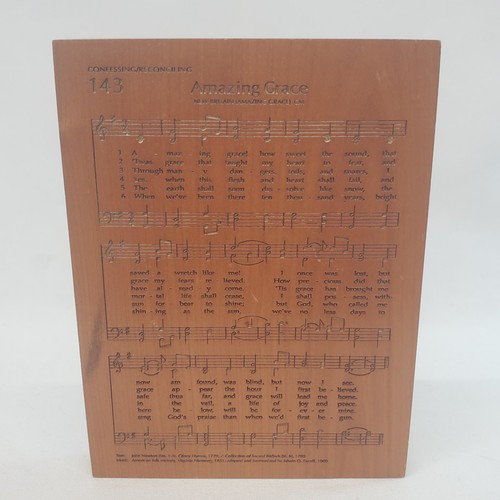 CONFESSING/RECONCILING
143
Amazing Grace
1 A - maz - ing grace! how sweet the sound, that
2 'Twas grace that taught my heart to fear, and
3 Through man - y dan - gers, toils, and snares, I
4 Yes, when this flesh and heart shall fail, and
5 The earth shall soon dis - solve like snow, the
6 When we've been there ten thou - sand years, bright
saved a wretch like me! I once was lost, but
grace my fears re - lieved. How pre - cious did that
have al - read - y come. 'Tis grace has brought me
mor - tal life shall cease, I shall pos - sess, with -
sun for - bear to shine; but God, who called me
shin - ing as the sun, we've no less days to
now am found, was blind, but now I see.
grace ap - pear the hour I first be - lieved.
safe thus far, and grace will lead me home.
in the veil, a life of joy and peace.
here be - low, will be for - ev - er mine.
sing God's praise than when we'd first be - gun.